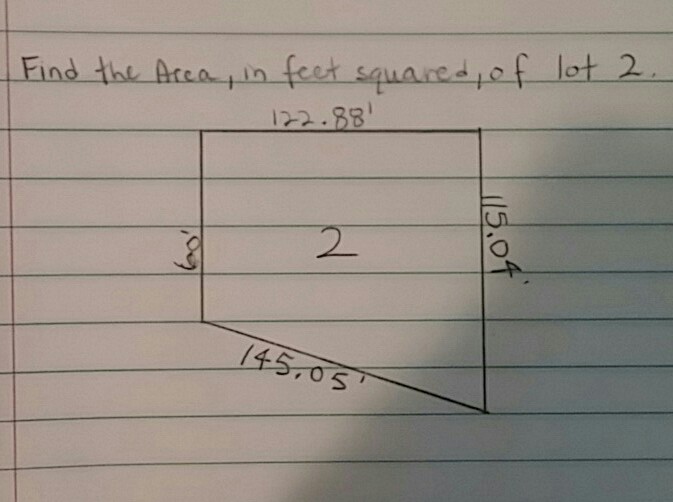 Find the Area, in feet squared, of lot 2.
122.88'
2
115.04'
145.05'